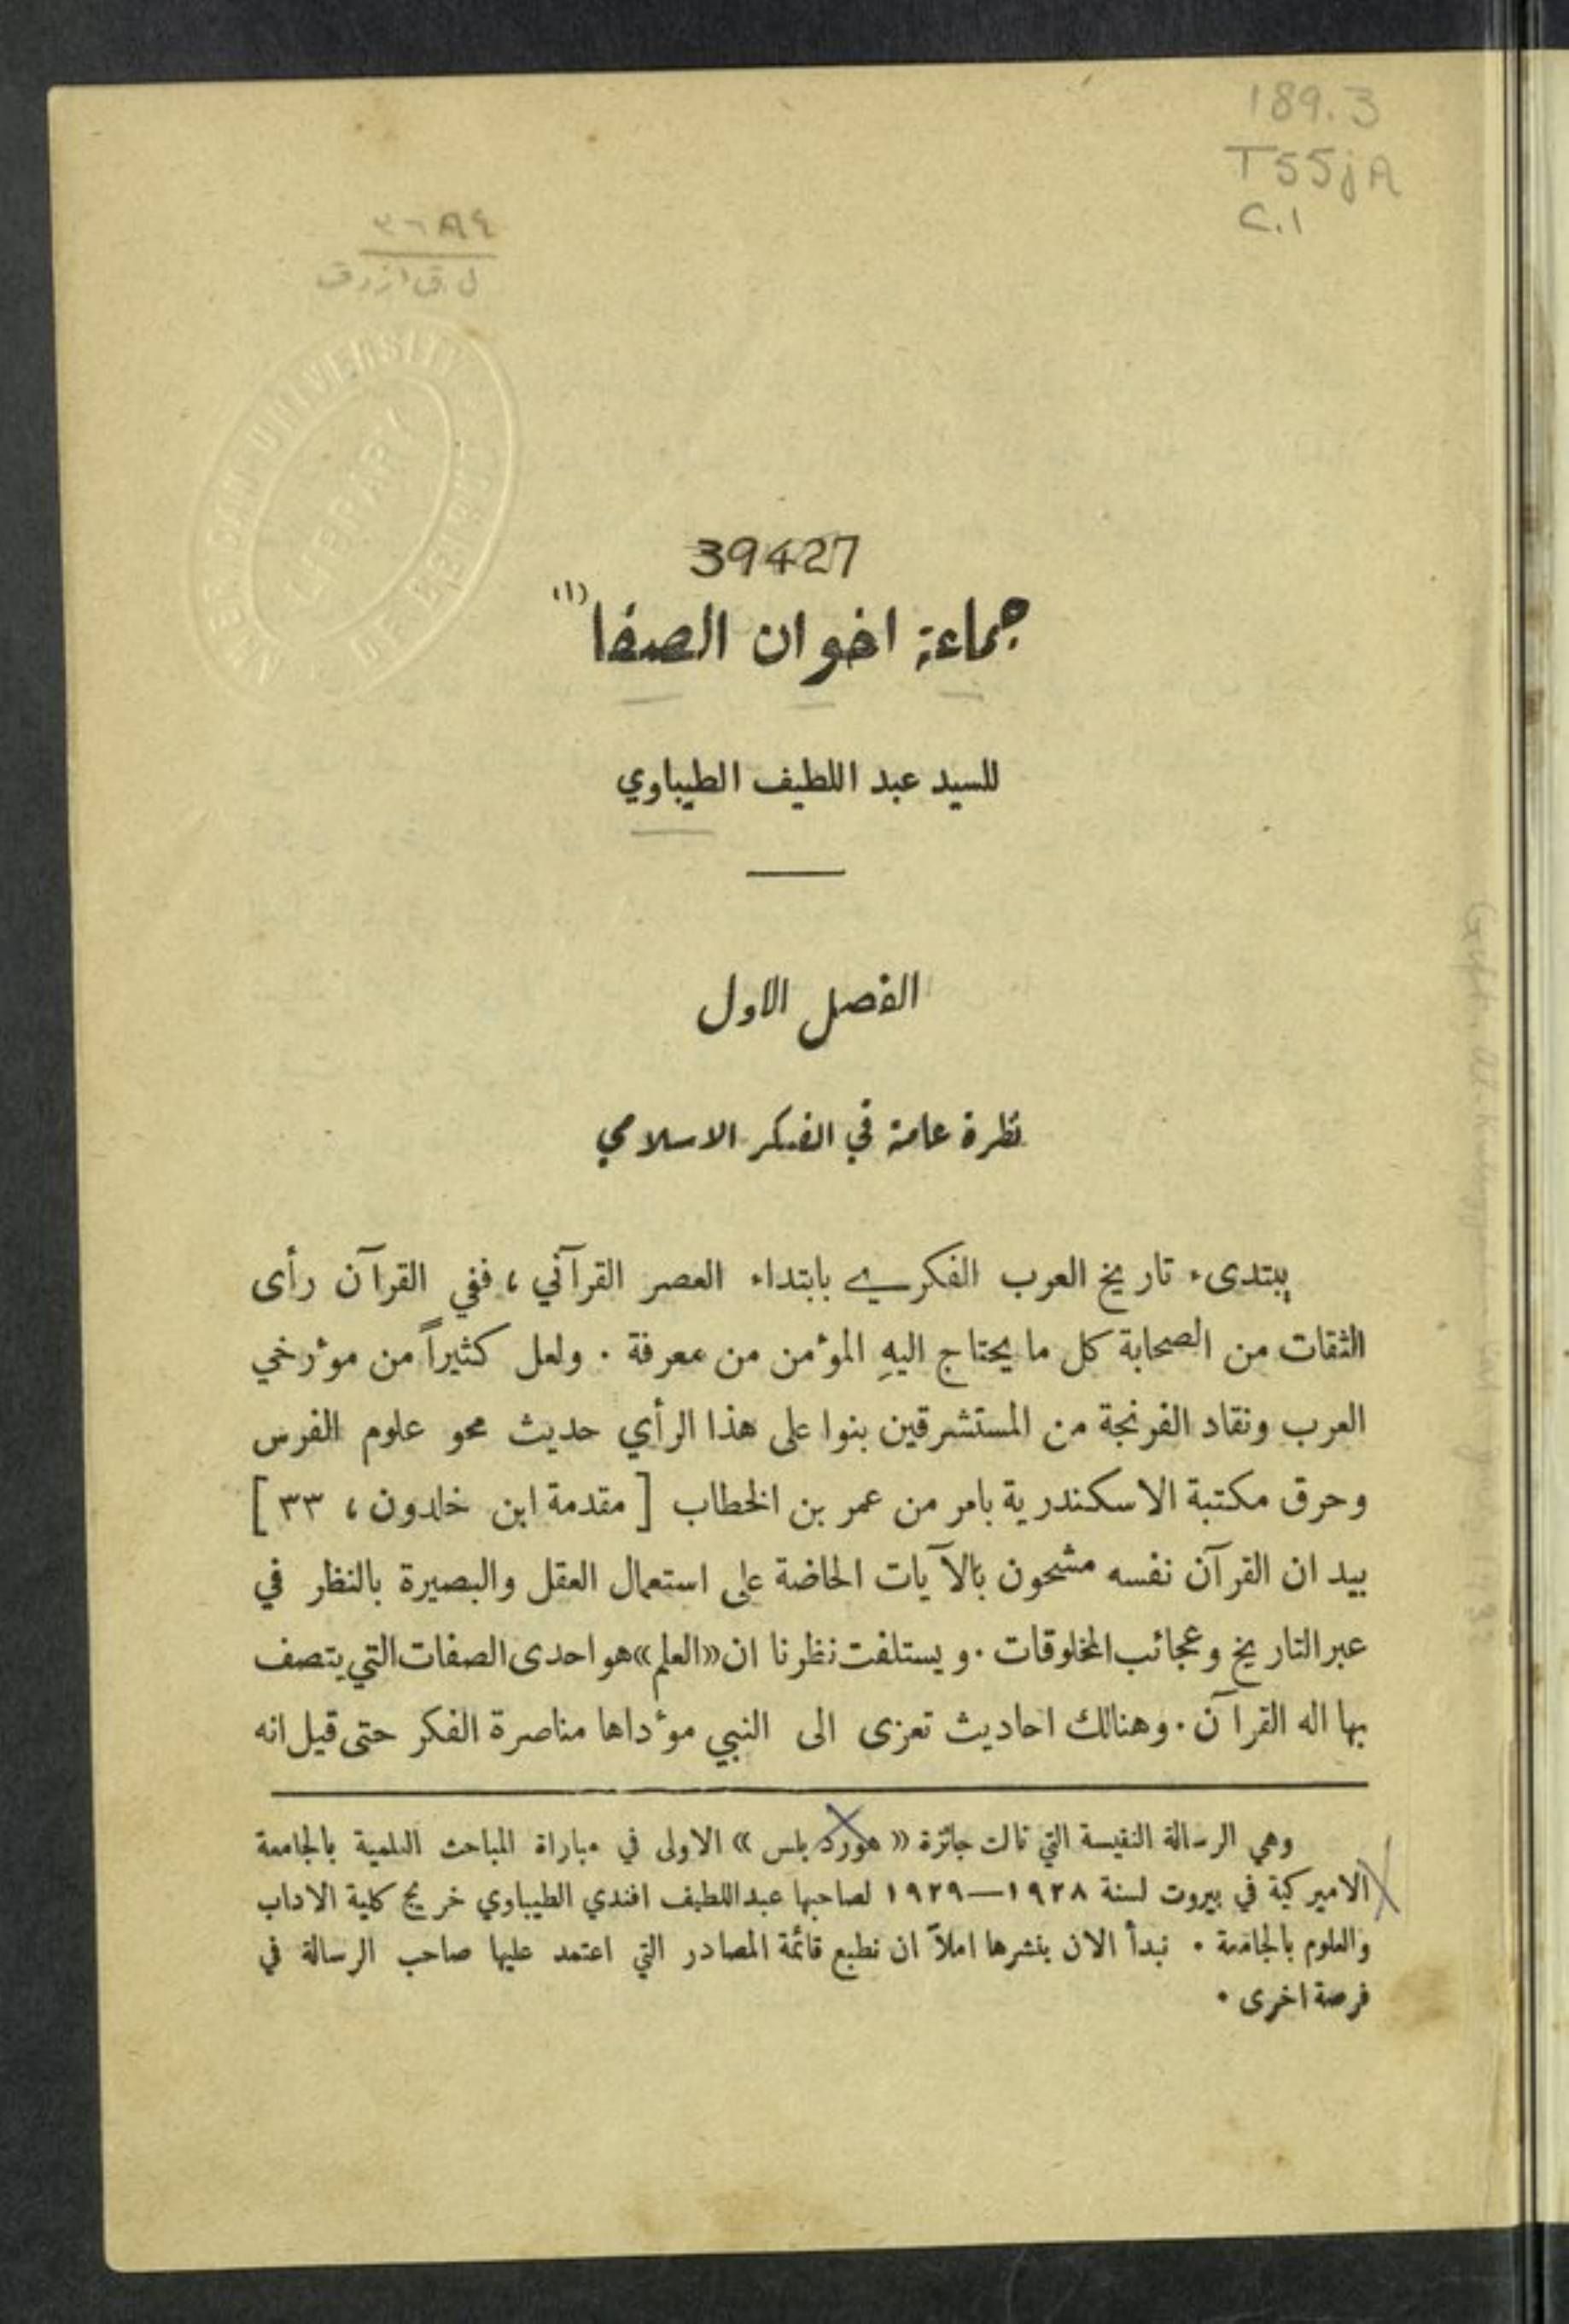 189.3
T55jA
C.1
٣٦٨٤
AMERICAN UNIVERSITY
LIBRARY
OF BEIRUT
39427
جماعة اخوان الصفا (١)
للسيد عبد اللطيف الطيباوي
الفصل الاول
نظرة عامة في الفكر الاسلامي
يبتدىء تاريخ العرب الفكري بابتداء العصر القرآني ، ففي القرآن رأى
الثقات من الصحابة كل ما يحتاج اليهِ المؤمن من معرفة . ولعل كثيراً من مؤرخي
العرب ونقاد الفرنجة من المستشرقين بنوا على هذا الرأي حديث محو علوم الفرس
وحرق مكتبة الاسكندرية بامر من عمر بن الخطاب [ مقدمة ابن خلدون ، ٣٣ ]
بيد ان القرآن نفسه مشحون بالآيات الحاضة على استعمال العقل والبصيرة بالنظر في
عبر التاريخ وعجائب المخلوقات . ويستلفت نظرنا ان «العلم» هو احدى الصفات التي يتصف
بها اله القرآن . وهنالك احاديث تعزى الى النبي مؤداها مناصرة الفكر حتى قيل انه
وهي الرسالة النفيسة التي نالت جائزة « هورد بلس » الاولى في مباراة المباحث العلمية بالجامعة
الاميركية في بيروت لسنة ١٩٢٨—١٩٢٩ لصاحبها عبد اللطيف افندي الطيباوي خريج كلية الاداب
والعلوم بالجامعة . نبدأ الان بنشرها املاً ان نطبع قائمة المصادر التي اعتمد عليها صاحب الرسالة في
فرصة اخرى .